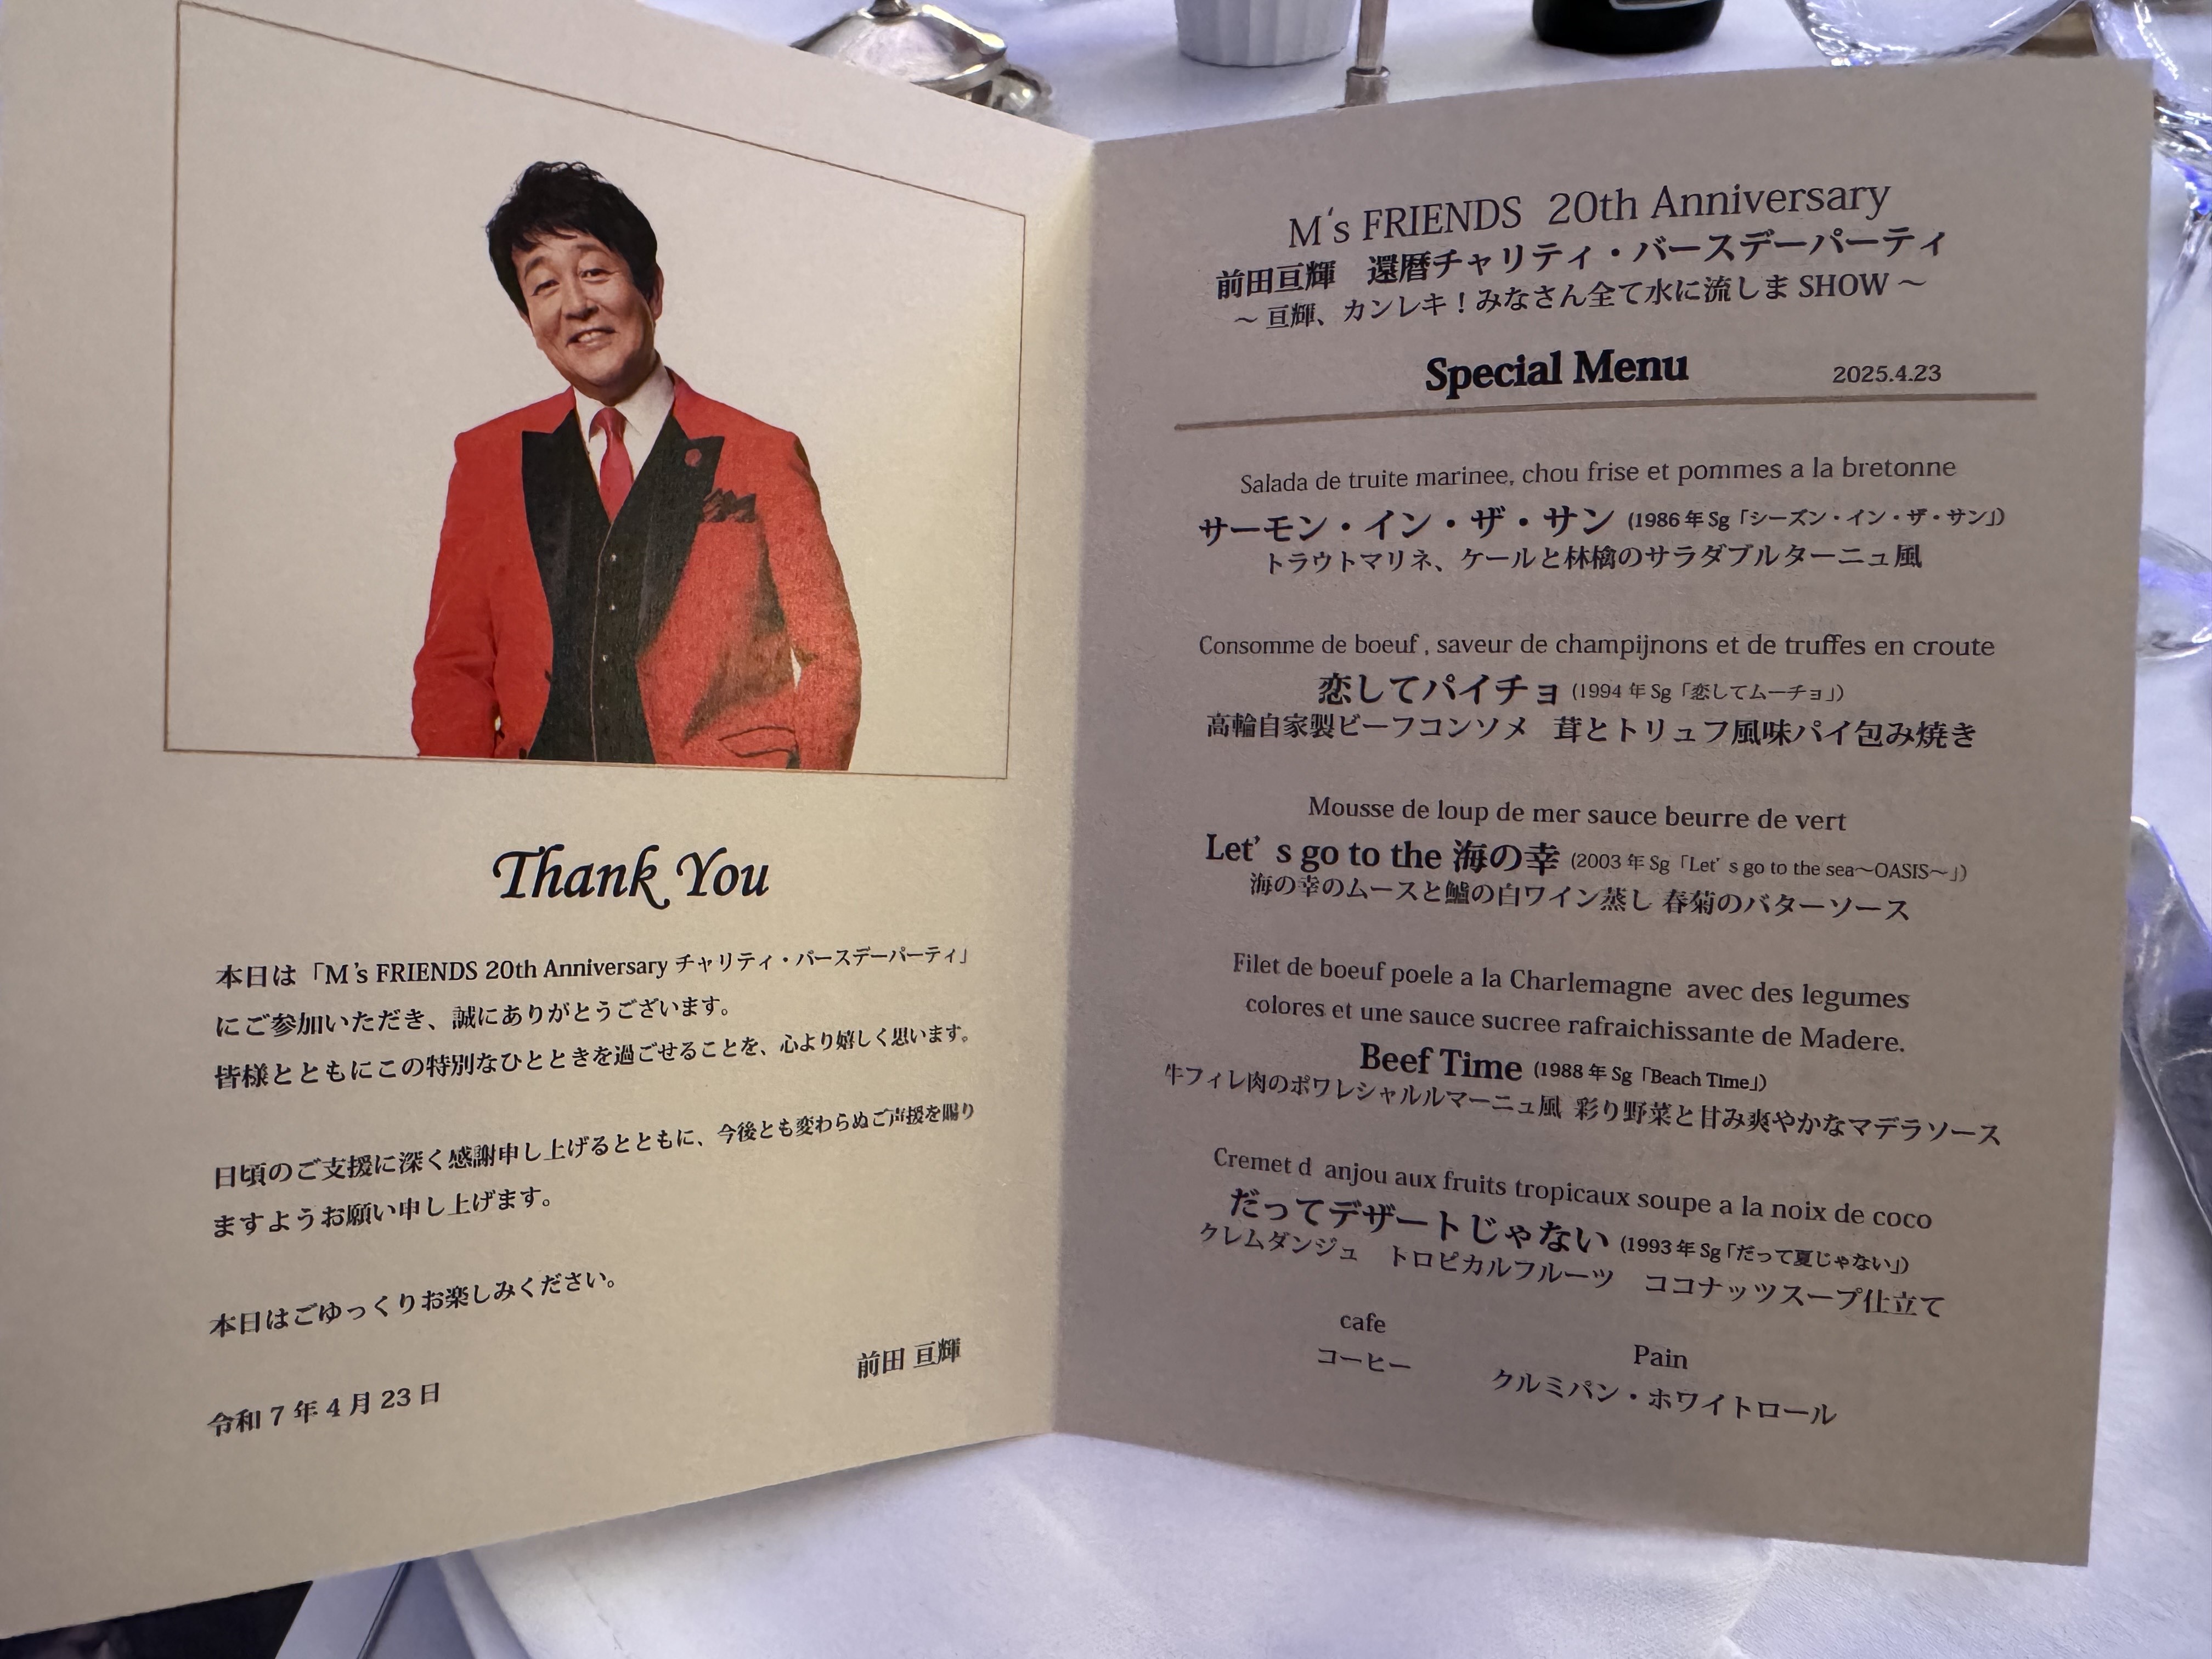 Thank You
本日は「M's FRIENDS 20th Anniversary チャリティ・バースデーパーティ」
にご参加いただき、誠にありがとうございます。
皆様とともにこの特別なひとときを過ごせることを、心より嬉しく思います。
日頃のご支援に深く感謝申し上げるとともに、今後とも変わらぬご声援を賜り
ますようお願い申し上げます。
本日はごゆっくりお楽しみください。
前田 亘輝
令和 7 年 4 月 23 日
M's FRIENDS 20th Anniversary
前田亘輝 還暦チャリティ・バースデーパーティ
～ 亘輝、カンレキ！みなさん全て水に流しま SHOW ～
Special Menu 2025.4.23
Salada de truite marinee, chou frise et pommes a la bretonne
サーモン・イン・ザ・サン (1986 年 Sg「シーズン・イン・ザ・サン」)
トラウトマリネ、ケールと林檎のサラダブルターニュ風
Consomme de boeuf , saveur de champijnons et de truffes en croute
恋してパイチョ (1994 年 Sg「恋してムーチョ」)
高輪自家製ビーフコンソメ 茸とトリュフ風味パイ包み焼き
Mousse de loup de mer sauce beurre de vert
Let's go to the 海の幸 (2003 年 Sg「Let's go to the sea～OASIS～」)
海の幸のムースと鱸の白ワイン蒸し 春菊のバターソース
Filet de boeuf poele a la Charlemagne avec des legumes
colores et une sauce sucree rafraichissante de Madere.
Beef Time (1988 年 Sg「Beach Time」)
牛フィレ肉のポワレシャルルマーニュ風 彩り野菜と甘み爽やかなマデラソース
Cremet d anjou aux fruits tropicaux soupe a la noix de coco
だってデザートじゃない (1993 年 Sg「だって夏じゃない」)
クレムダンジュ トロピカルフルーツ ココナッツスープ仕立て
cafe
コーヒー
Pain
クルミパン・ホワイトロール